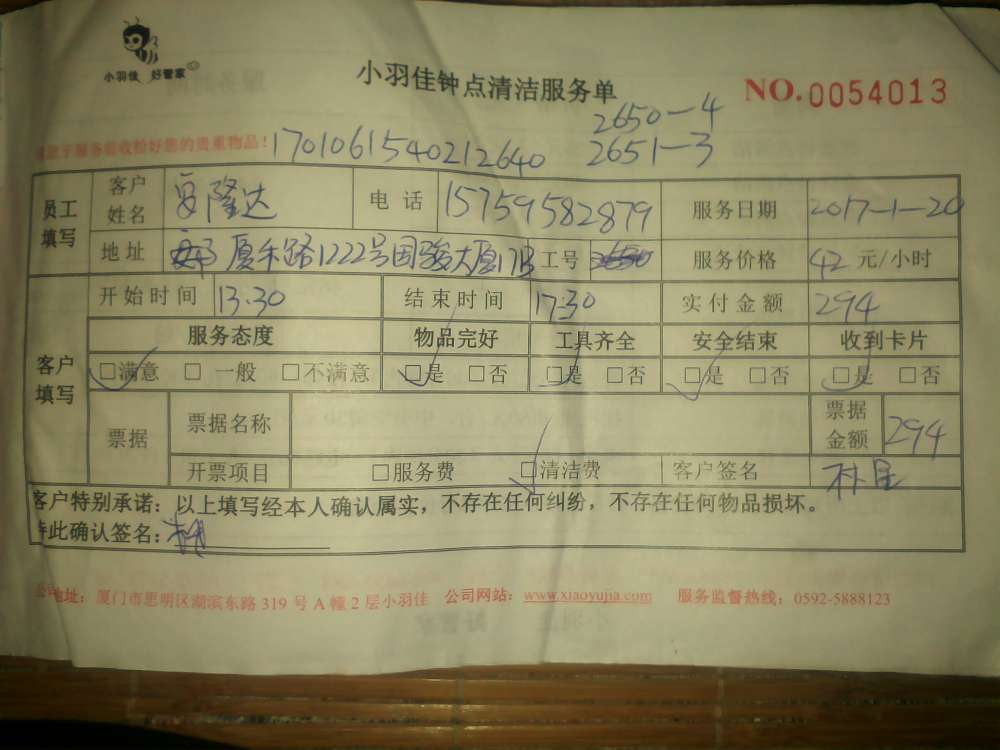 小羽佳 好管家
小羽佳钟点清洁服务单
NO.0054013
于服务前收拾好您的贵重物品!
1701061540212640
2650-4
2651-3
员工填写 客户姓名 安隆达 电话 15759582879 服务日期 2017-1-20
地址 厦禾路1222号国骏大厦17B 工号 2650 服务价格 42 元/小时
开始时间 13:30 结束时间 17:30 实付金额 294
客户填写 服务态度 物品完好 工具齐全 安全结束 收到卡片
□满意 □一般 □不满意 □是 □否 □是 □否 □是 □否 □是 □否
票据 票据名称 票据金额 294
开票项目 □服务费 □清洁费 客户签名
客户特别承诺：以上填写经本人确认属实，不存在任何纠纷，不存在任何物品损坏。
特此确认签名：
公司地址：厦门市思明区湖滨东路 319 号 A 幢 2 层小羽佳 公司网站：www.xiaoyujia.com 服务监督热线：0592-5888123